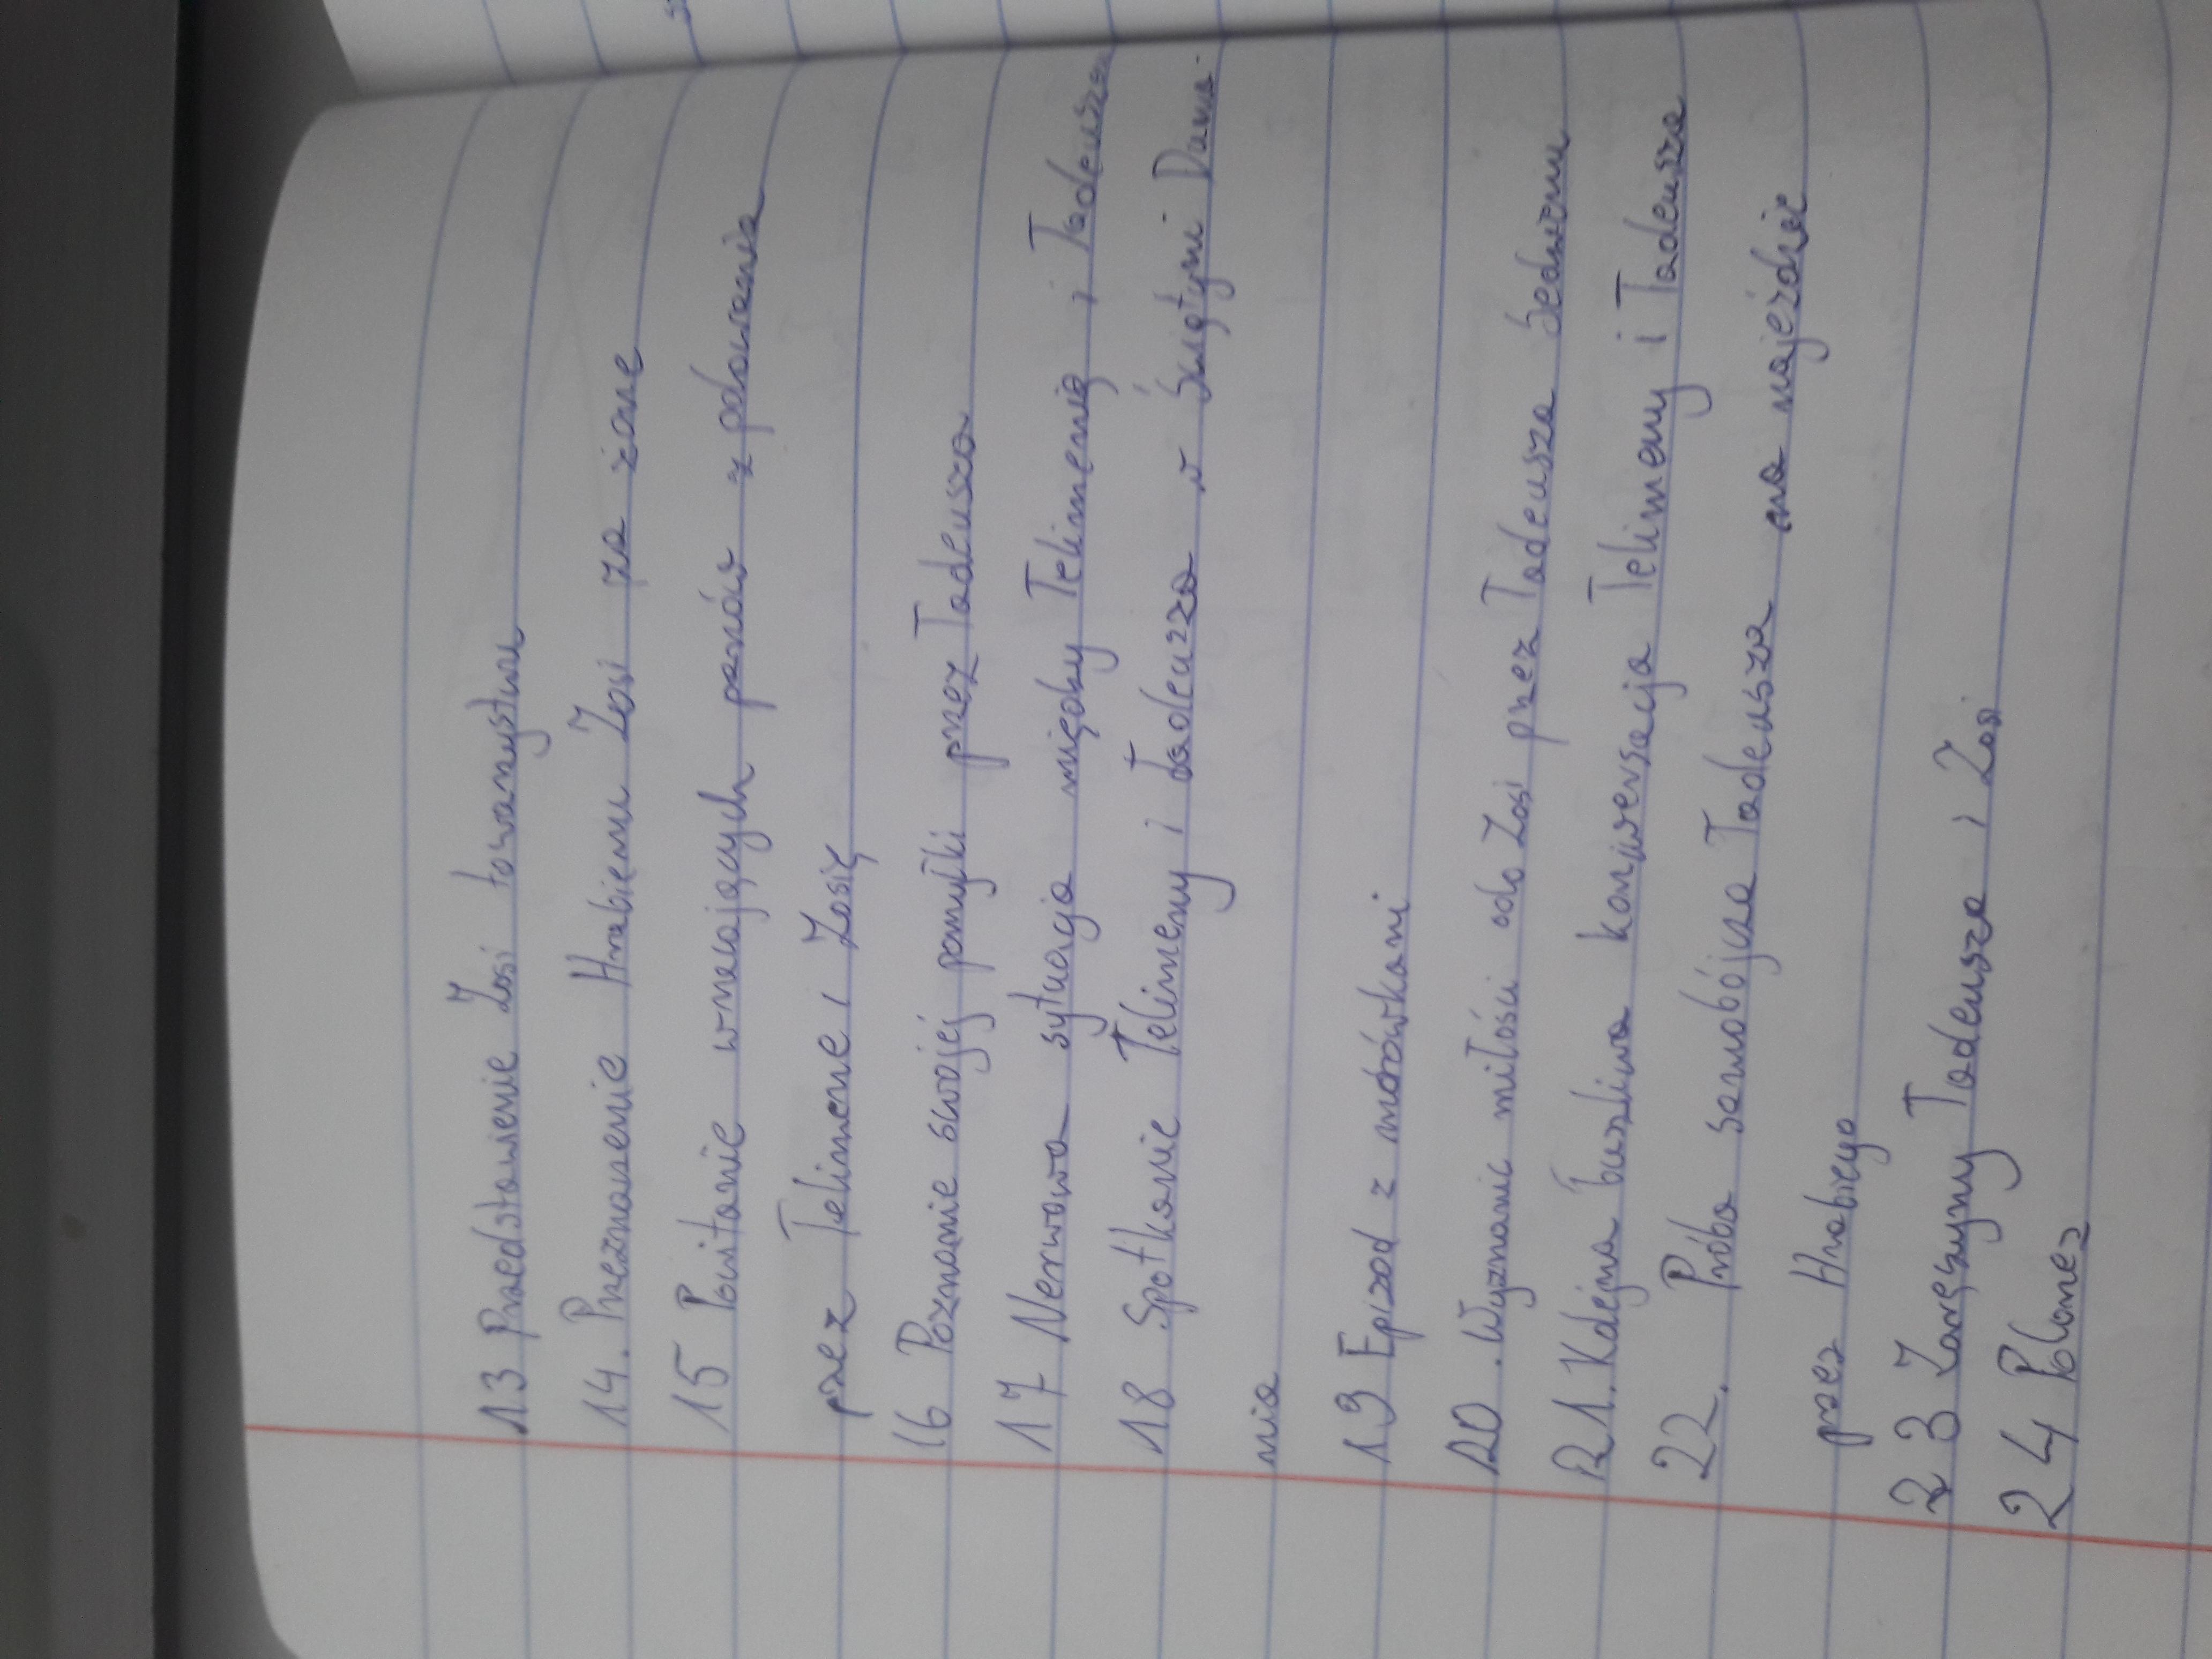 13 Przedstawienie Zosi towarzystwu
14. Przeznaczenie Hrabiemu Zosi za żonę
15 Powitanie wracających panów z polowania
przez Telimenę i Zosię
16 Poznanie swojej pomyłki przez Tadeusza
17 Nerwowa sytuacja między Telimenią i Tadeuszem
18 Spotkanie Telimeny i Tadeuzza w Świątyni Duma-
nia
19 Epizod z mrówkami
20. Wyznanie miłości do Zosi przez Tadeusza Sędziemu
21. Kolejna burzliwa konwersacja Telimeny i Tadeusza
22. Próba samobójcza Tadeusza na najeździe
przez Hrabiego
23 Zaręczyny Tadeusza i Zosi
24 Polonez